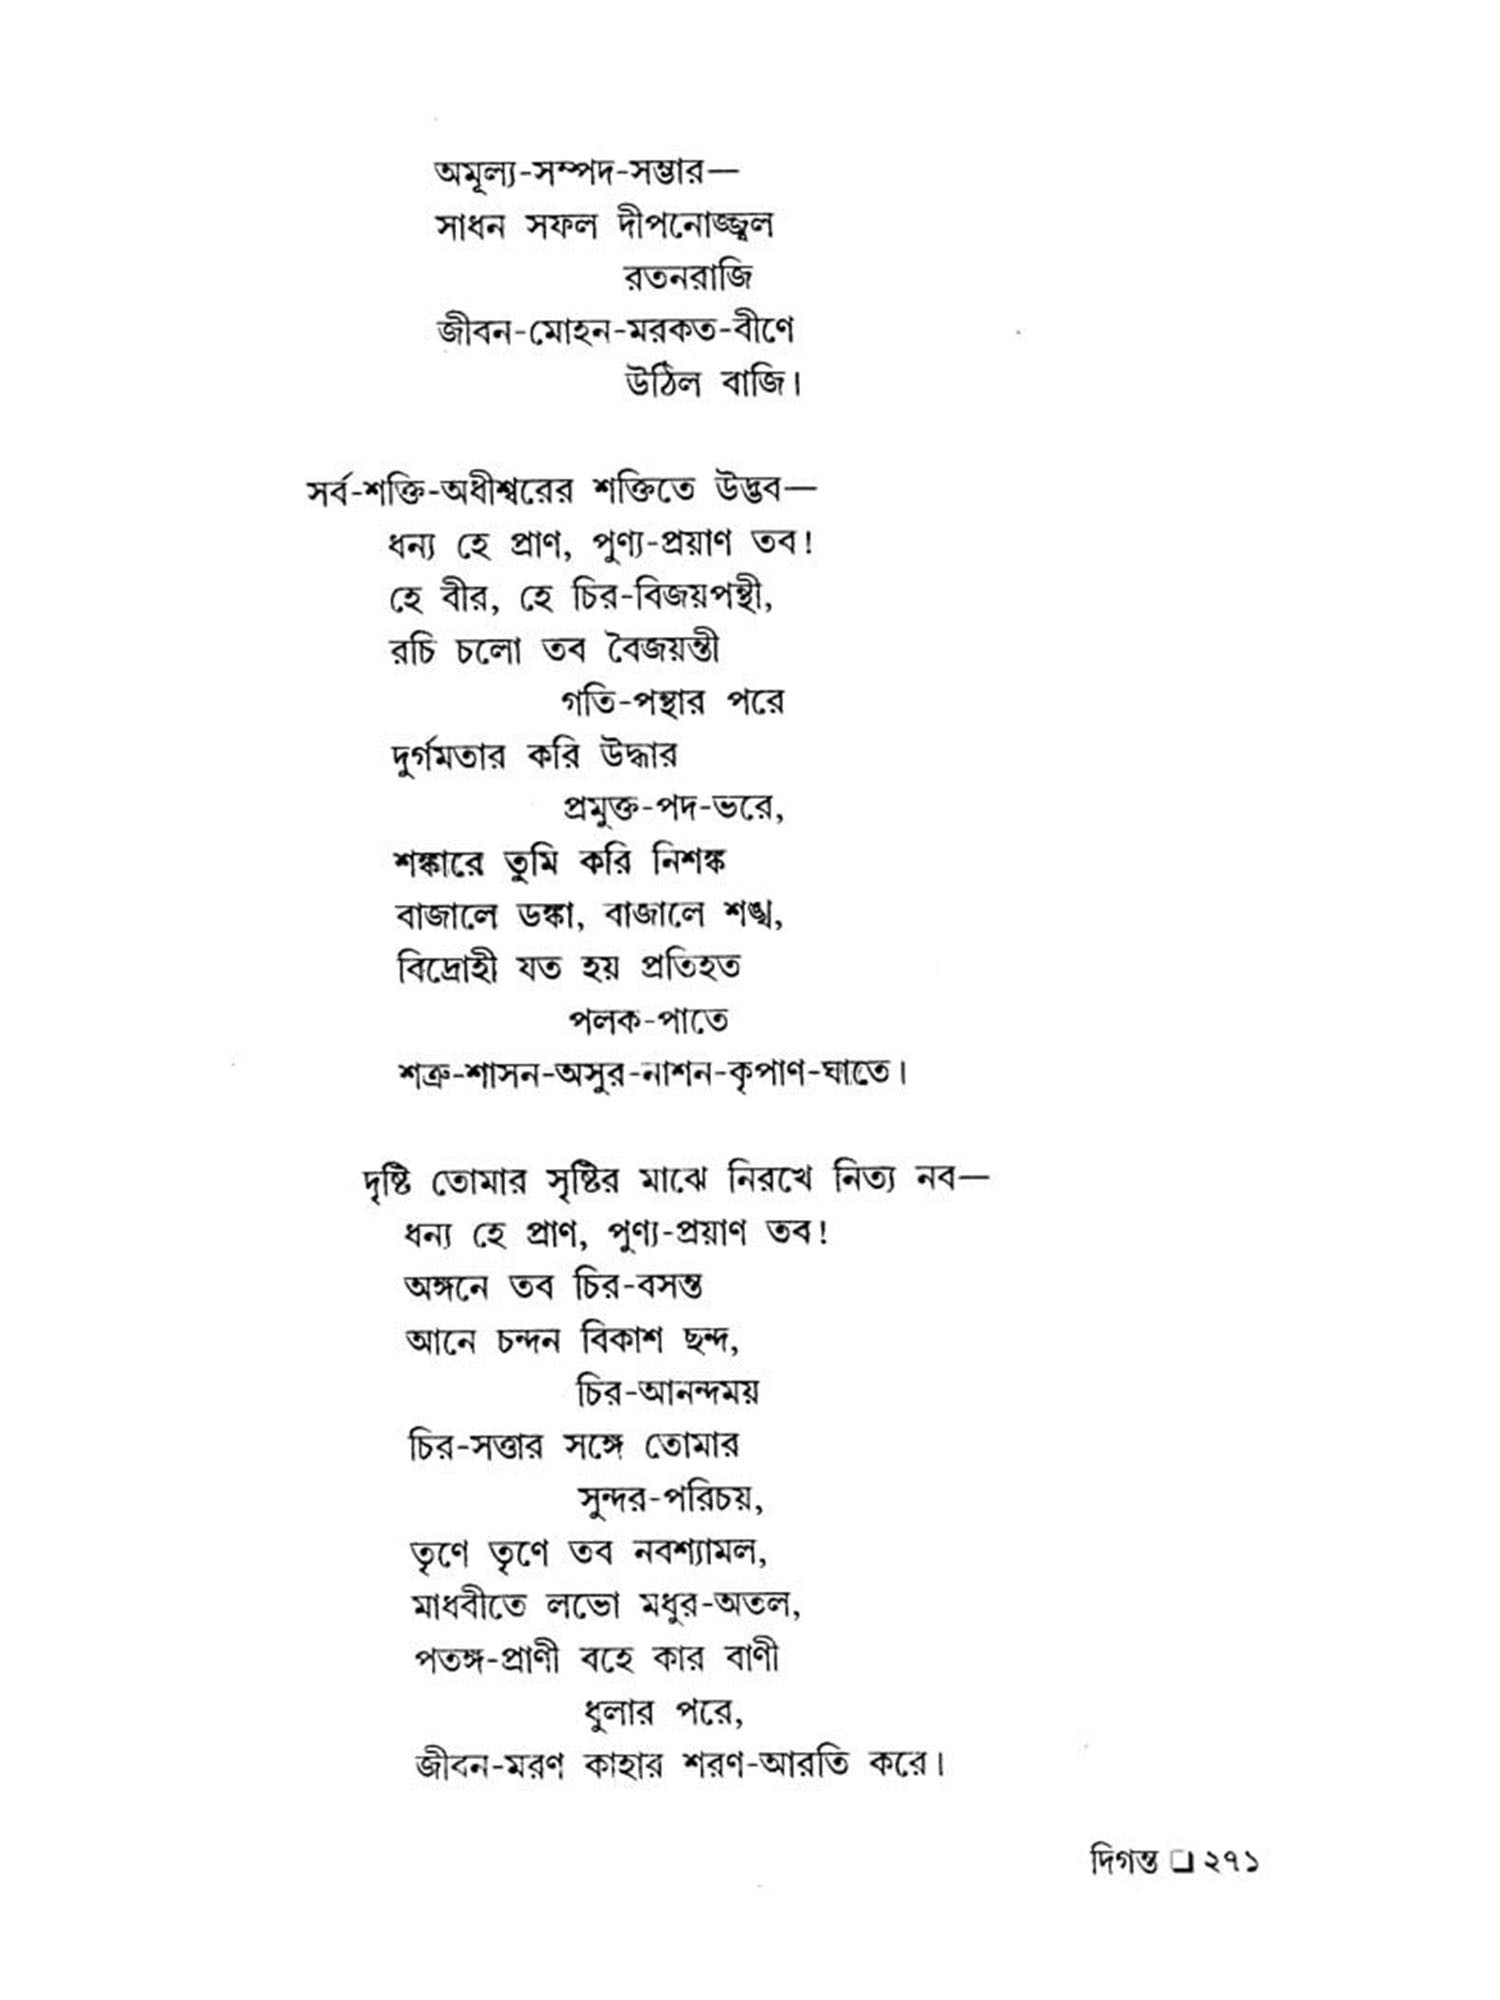 অমূল্য-সম্পদ-সম্ভার—
সাধন সফল দীপনোজ্জ্বল
রতনরাজি
জীবন-মোহন-মরকত-বীণে
উঠিল বাজি।
সর্ব-শক্তি-অধীশ্বরের শক্তিতে উদ্ভব—
ধন্য হে প্রাণ, পুণ্য-প্রয়াণ তব!
হে বীর, হে চির-বিজয়পন্থী,
রচি চলো তব বৈজয়ন্তী
গতি-পন্থার পরে
দুর্গমতার করি উদ্ধার
প্রমুক্ত-পদ-ভরে,
শঙ্কারে তুমি করি নিশঙ্ক
বাজালে ডঙ্কা, বাজালে শঙ্খ,
বিদ্রোহী যত হয় প্রতিহত
পলক-পাতে
শত্রু-শাসন-অসুর-নাশন-কৃপাণ-ঘাতে।
দৃষ্টি তোমার সৃষ্টির মাঝে নিরখে নিত্য নব—
ধন্য হে প্রাণ, পুণ্য-প্রয়াণ তব!
অঙ্গনে তব চির-বসন্ত
আনে চন্দন বিকাশ ছন্দ,
চির-আনন্দময়
চির-সত্তার সঙ্গে তোমার
সুন্দর-পরিচয়,
তৃণে তৃণে তব নবশ্যামল,
মাধবীতে লভো মধুর-অতল,
পতঙ্গ-প্রাণী বহে কার বাণী
ধুলার পরে,
জীবন-মরণ কাহার শরণ-আরতি করে।
দিগন্ত ❑ ২৭১